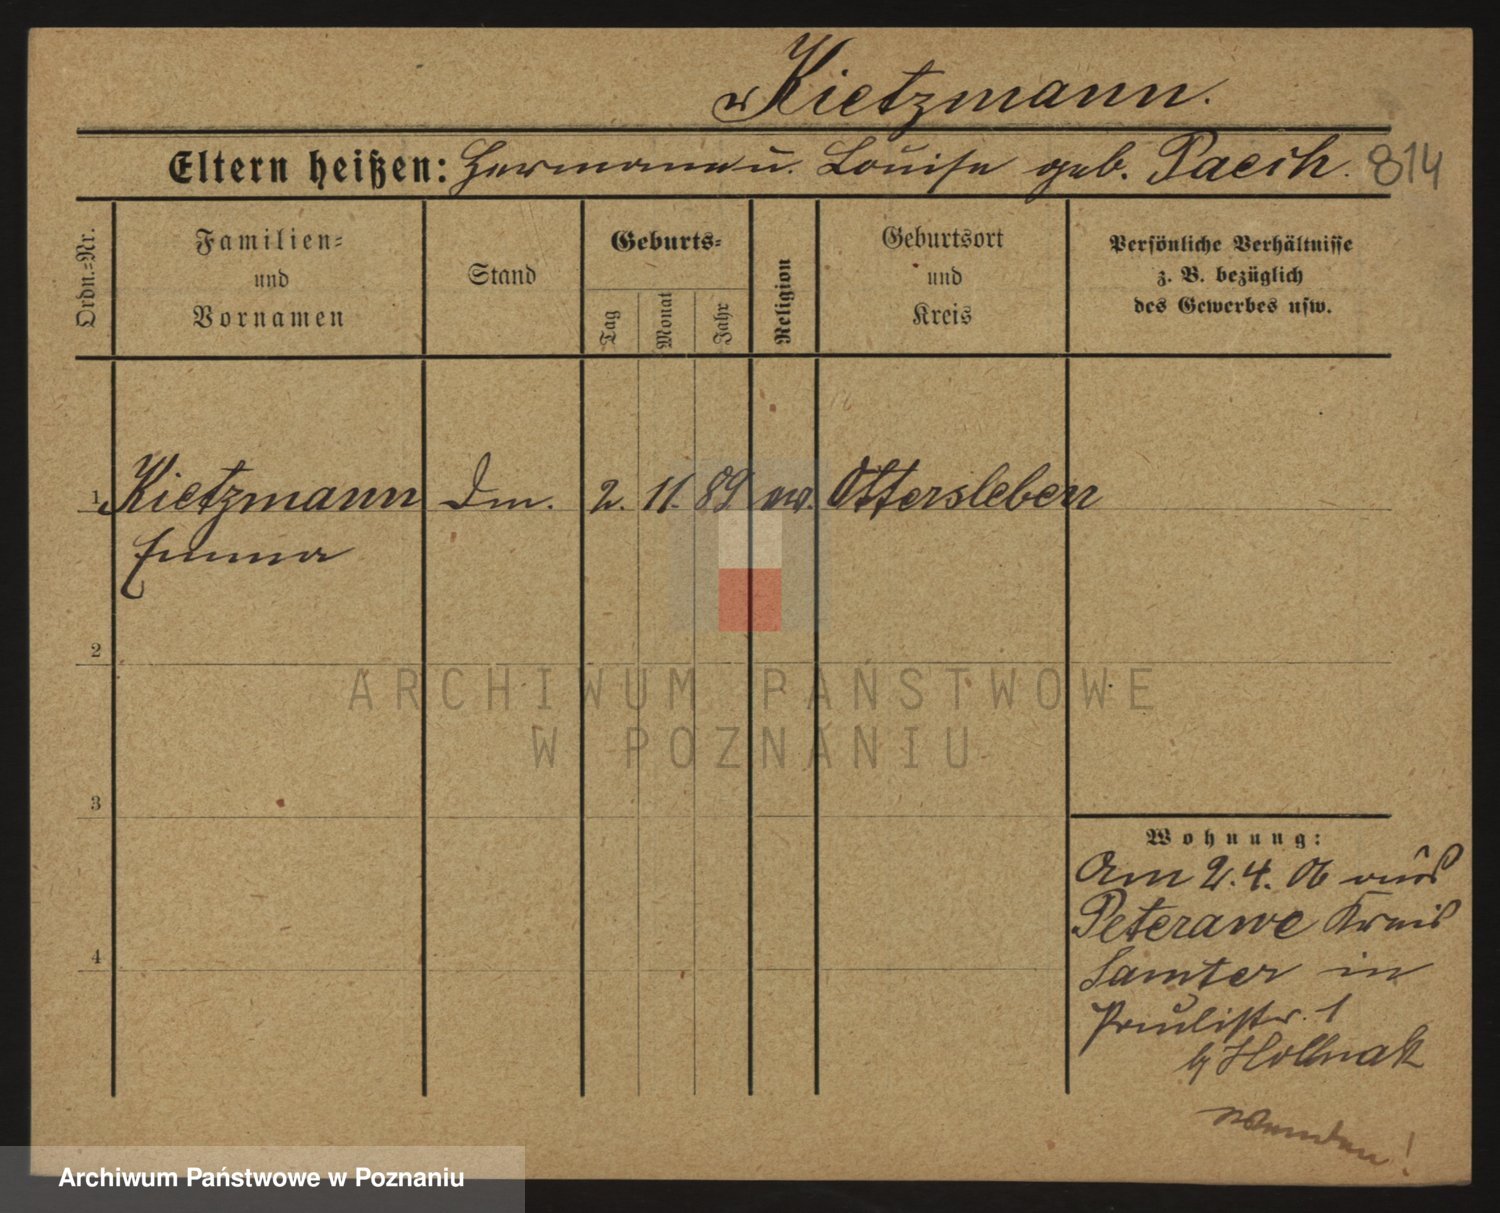 Kietzmann.
Eltern heißen: Hermann u. Louise geb. Paech. 814
Ordn.=Nr.
Familien=
und
Vornamen
Stand
Geburts=
Tag
Monat
Jahr
Religion
Geburtsort
und
Kreis
Persönliche Verhältnisse
z. B. bezüglich
des Gewerbes usw.
1 Kietzmann Dm. 2. 11. 89 ev. Ottersleben
Emma
2
ARCHIWUM PAŃSTWOWE
W POZNANIU
3
Wohnung:
Am 2.4.06 aus
Peterawe Kreis
Samter in
Paulistr. 1
4
wenden!
Archiwum Państwowe w Poznaniu